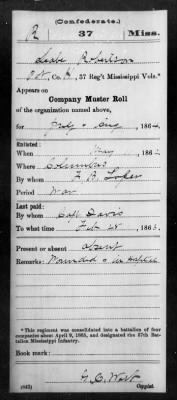 (Confederate.)
R 37 Miss.
Robertson
Pvt, Co. K, 37 Reg't Mississippi Vols.*
Appears on
Company Muster Roll
of the organization named above,
for July & Aug, 1864.
Enlisted:
When May, 1862
Where Columbus
By whom
Period War
Last paid:
By whom Capt Davis
To what time Feb 28, 1863.
Present or absent absent
Remarks: Wounded & in Hospital
*This regiment was consolidated into a battalion of four companies about April 9, 1865, and designated the 37th Battalion Mississippi Infantry.
Book mark:
(642) Copyist.